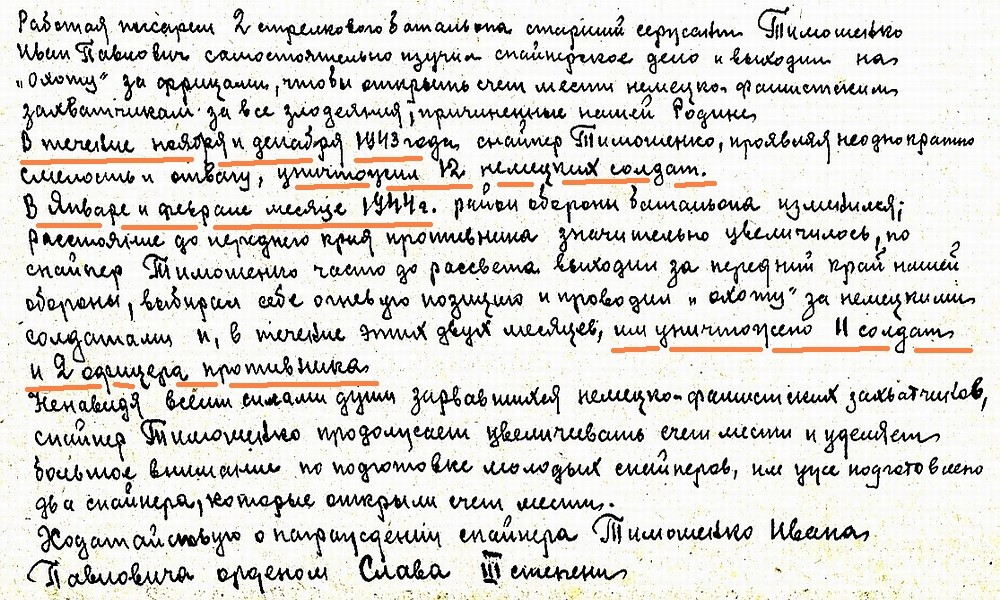 Работая писарем 2 стрелкового батальона старший сержант Тимошенко
Иван Павлович самостоятельно изучил снайперское дело и выходил на
„охоту" за фрицами, чтобы открыть счет мести немецко-фашистским
захватчикам за все злодеяния, причиненные нашей Родине
В течение ноября и декабря 1943 года снайпер Тимошенко, проявляя неоднократно
смелость и отвагу, уничтожил 12 немецких солдат.
В Январе и феврале месяце 1944г. район обороны батальона изменился;
расстояние до переднего края противника значительно увеличилось, но
снайпер Тимошенко часто до рассвета выходил за передний край нашей
обороны, выбирал себе огневую позицию и проводил „охоту" за немецкими
солдатами и, в течение этих двух месяцев, им уничтожено 11 солдат
и 2 офицера противника
Ненавидя всеми силами души зарвавшихся немецко-фашистских захватчиков,
снайпер Тимошенко продолжает увеличивать счет мести и уделяет
большое внимание по подготовке молодых снайперов, им уже подготовлено
два снайпера, которые открыли счет мести.
Ходатайствую о награждении снайпера Тимошенко Ивана
Павловича орденом Слава III степени